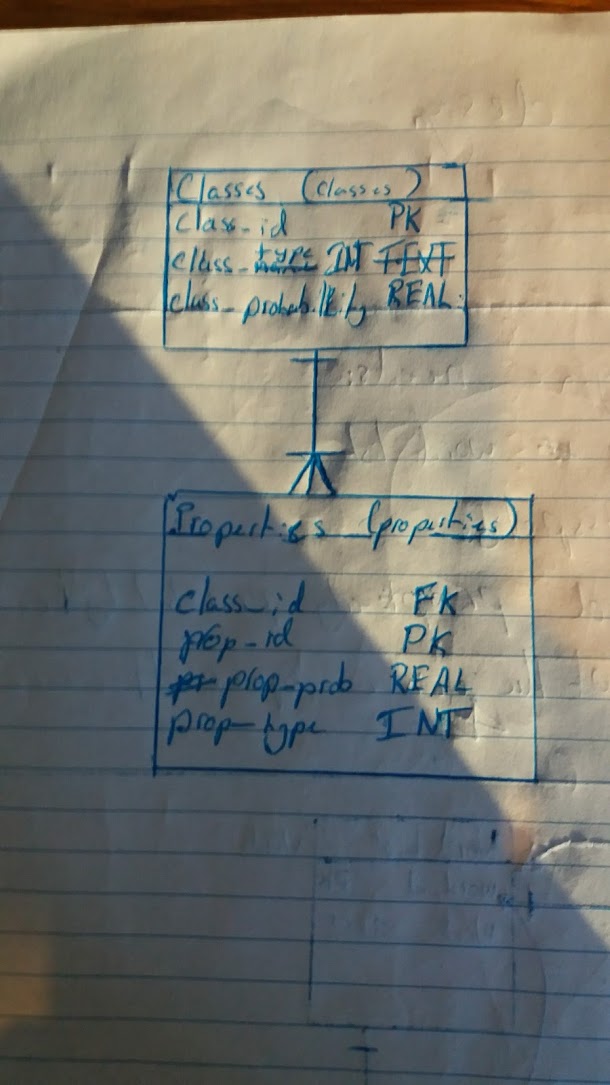 Classes (classes)
class_id PK
class_type INT TEXT
class_probability REAL
Properties (properties)
class_id FK
prop_id PK
prop_prob REAL
prop_type INT